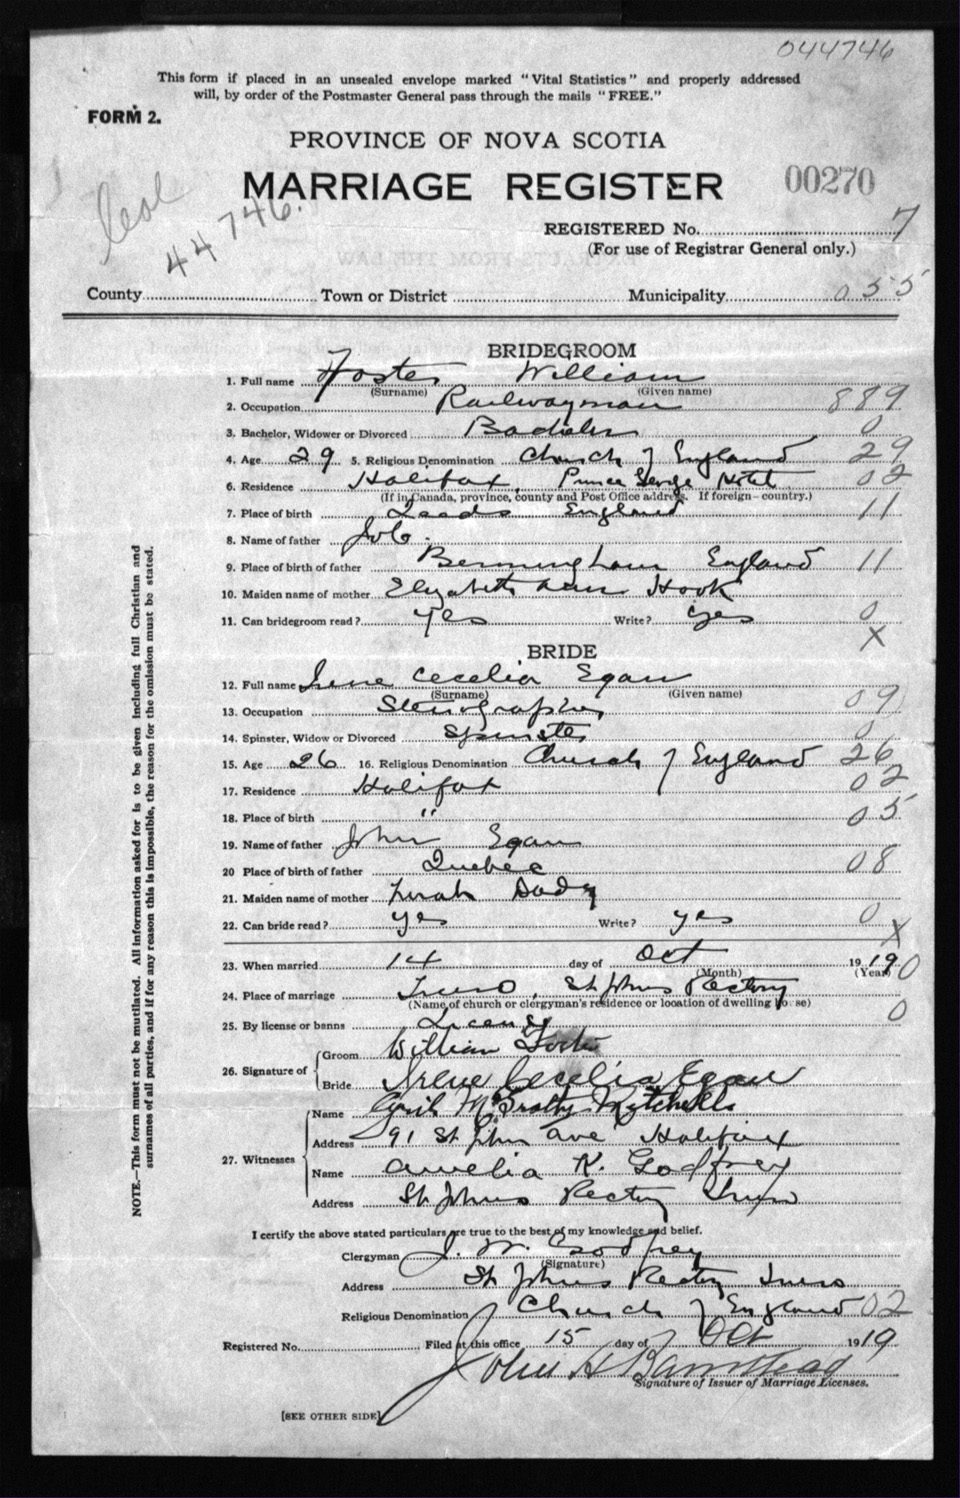 044746
This form if placed in an unsealed envelope marked "Vital Statistics" and properly addressed
will, by order of the Postmaster General pass through the mails "FREE."
FORM 2.
PROVINCE OF NOVA SCOTIA
MARRIAGE REGISTER 00270
44746.
REGISTERED No. 7
(For use of Registrar General only.)
County Town or District Municipality 055
BRIDEGROOM
1. Full name Foster William
(Surname) (Given name)
2. Occupation Railwayman 889
3. Bachelor, Widower or Divorced Bachelor 0
4. Age 29 5. Religious Denomination Church of England 29
6. Residence Halifax, Prince George Hotel 02
(If in Canada, province, county and Post Office address. If foreign—country.)
7. Place of birth Leeds England 11
8. Name of father Job.
9. Place of birth of father Bermingham England 11
10. Maiden name of mother Elizabeth Hook
11. Can bridegroom read? Yes Write? Yes 0
X
BRIDE
12. Full name Irene Cecelia Egan
(Surname) (Given name)
13. Occupation Stenographer 09
14. Spinster, Widow or Divorced Spinster 0
15. Age 26 16. Religious Denomination Church of England 26
17. Residence Halifax 02
18. Place of birth " 05
19. Name of father John Egan
20 Place of birth of father Quebec 08
21. Maiden name of mother
22. Can bride read? yes Write? yes 0
X
23. When married 14 day of Oct 1919 0
(Month) (Year)
24. Place of marriage Truro, St Johns Rectory
(Name of church or clergyman's residence or location of dwelling house) 0
25. By license or banns License
26. Signature of Groom William Foster
Bride Irene Cecelia Egan
27. Witnesses Name Cyril Mitchell
Address 91 St Johns Ave Halifax
Name Amelia K. Godfrey
Address St Johns Rectory Truro
I certify the above stated particulars are true to the best of my knowledge and belief.
Clergyman J. W. Godfrey
(Signature)
Address St Johns Rectory Truro
Religious Denomination Church of England 02
Registered No. Filed at this office 15 day of Oct 1919
John H Barnstead
Signature of Issuer of Marriage Licenses.
[SEE OTHER SIDE]
NOTE.—This form must not be mutilated. All information asked for is to be given including full Christian and
surnames of all parties, and if for any reason this is impossible, the reason for the omission must be stated.